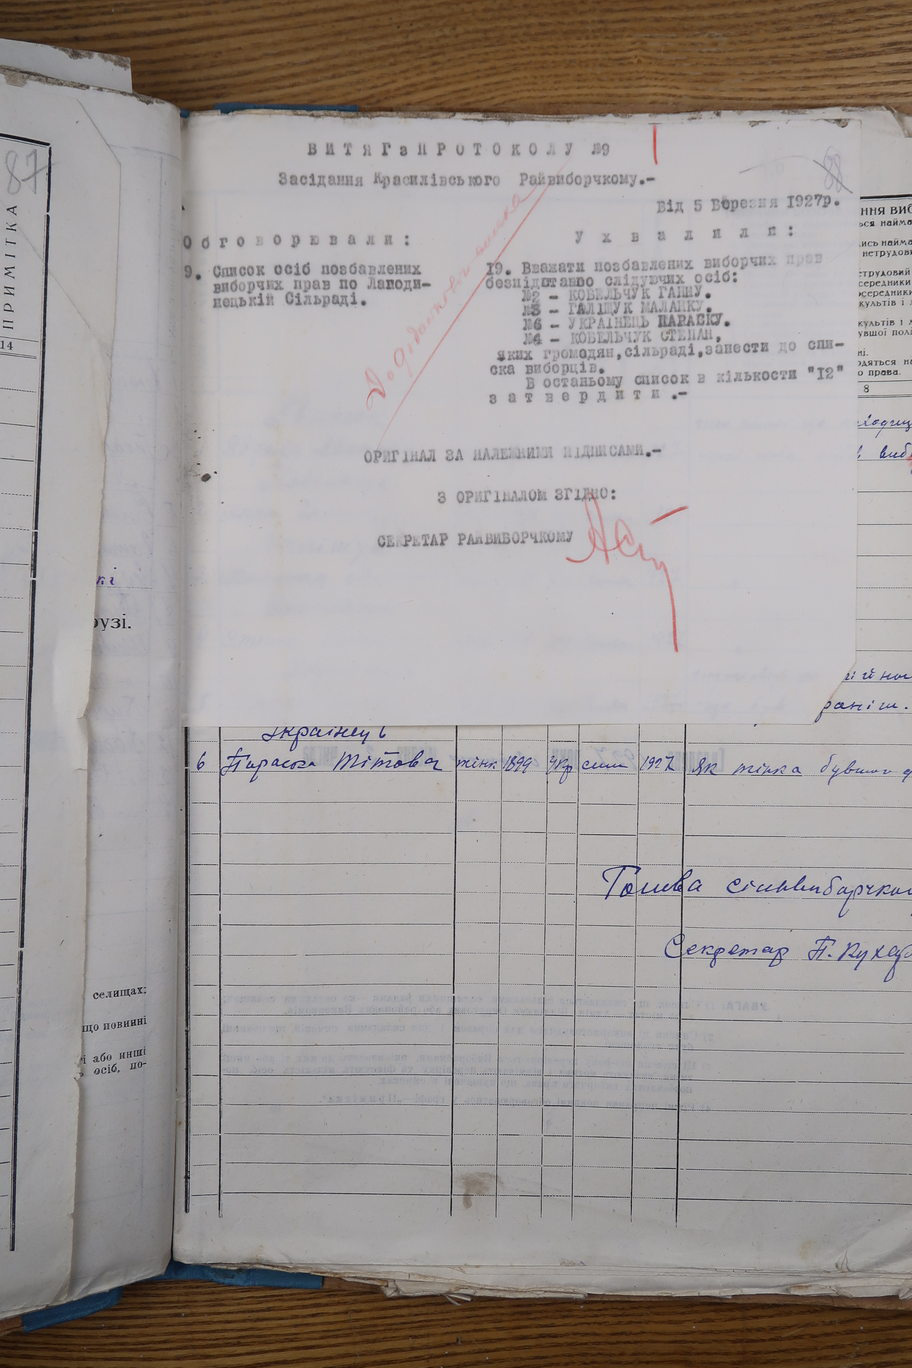 87
ПРИМІТКА
14
кі
рузі.
селищах:
що повинні
і або инші
осіб, по-
88
В И Т Я Г з П Р О Т О К О Л У №9
Засідання Красилівського Райвиборчкому.-
Від 5 Березня 1927р.
О б г о в о р ю в а л и :
9. Список осіб позбавлених
виборчих прав по Лагоди-
нецькій Сільраді.
У х в а л и л и :
19. Вважати позбавлених виборчих прав
безпідставо слідуючих осіб:
№2 - КОБЕЛЬЧУК ГАННУ.
№3 - ГАЛІЩУК МАЛАНКУ.
№6 - УКРАІНЕЦЬ ПАРАСКУ.
№4 - КОБЕЛЬЧУК СТЕПАН,
яких громадян,сільраді,занести до спи-
ска виборців.
В останьому список в кількости "12"
з а т в е р д и т и .-
ОРИГІНАЛ ЗА НАЛЕЖНИМИ ПІДПИСАМИ.-
З ОРИГІНАЛОМ ЗГІДНО:
СЕКРЕТАР РАЙВИБОРЧКОМУ
ННЯ ВИБ
8
Українець
6 Параска Тітова жінк 1899 Укр селян 1927 Як жінка бувшого
Голова сільвиборчком
Секретар П. Кухар